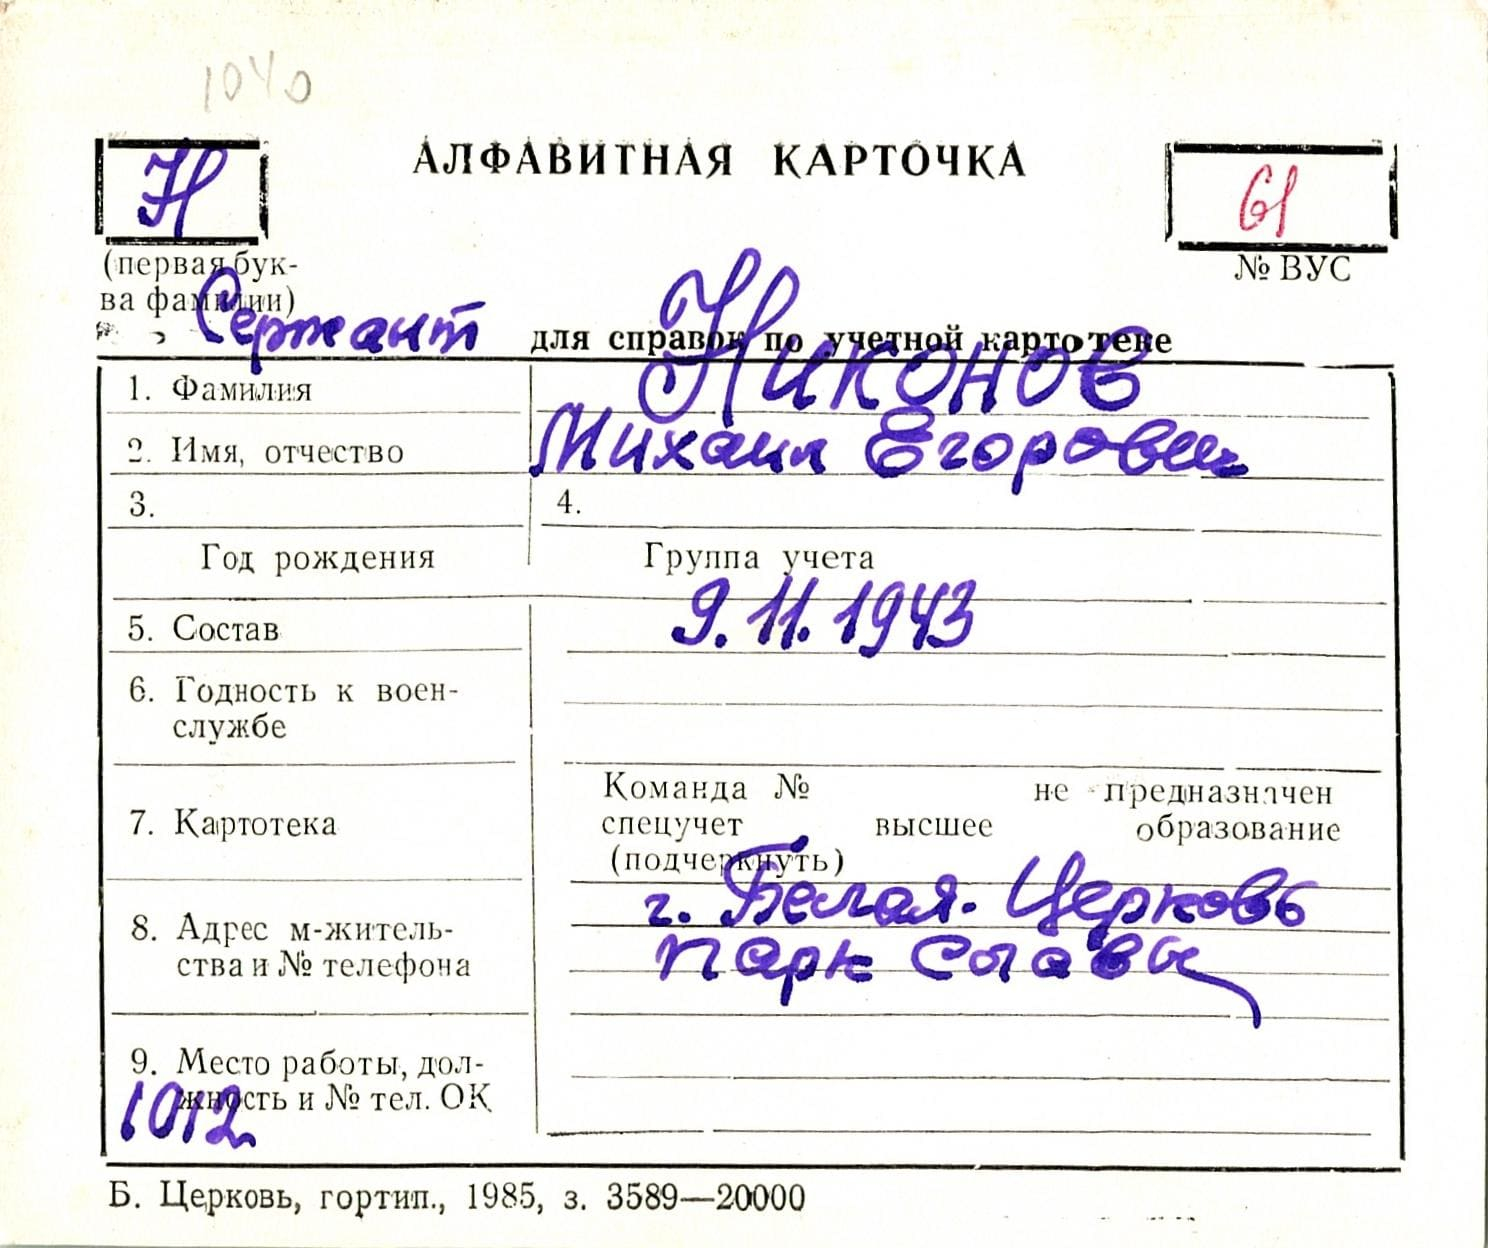 1040
АЛФАВИТНАЯ КАРТОЧКА
Н
61
(первая бук-
ва фамилии)
№ ВУС
Сержант
для справок по учетной картотеке
1. Фамилия Никонов
2. Имя, отчество Михаил Егорович
3. 4.
Год рождения Группа учета
5. Состав 9.11.1943
6. Годность к воен-
службе
Команда № не предназначен
7. Картотека спецучет высшее образование
(подчеркнуть)
г. Белая-Церковь
8. Адрес м-житель-
ства и № телефона Парк Славы
9. Место работы, дол-
жность и № тел. ОК
1012
Б. Церковь, гортип., 1985, з. 3589—20000